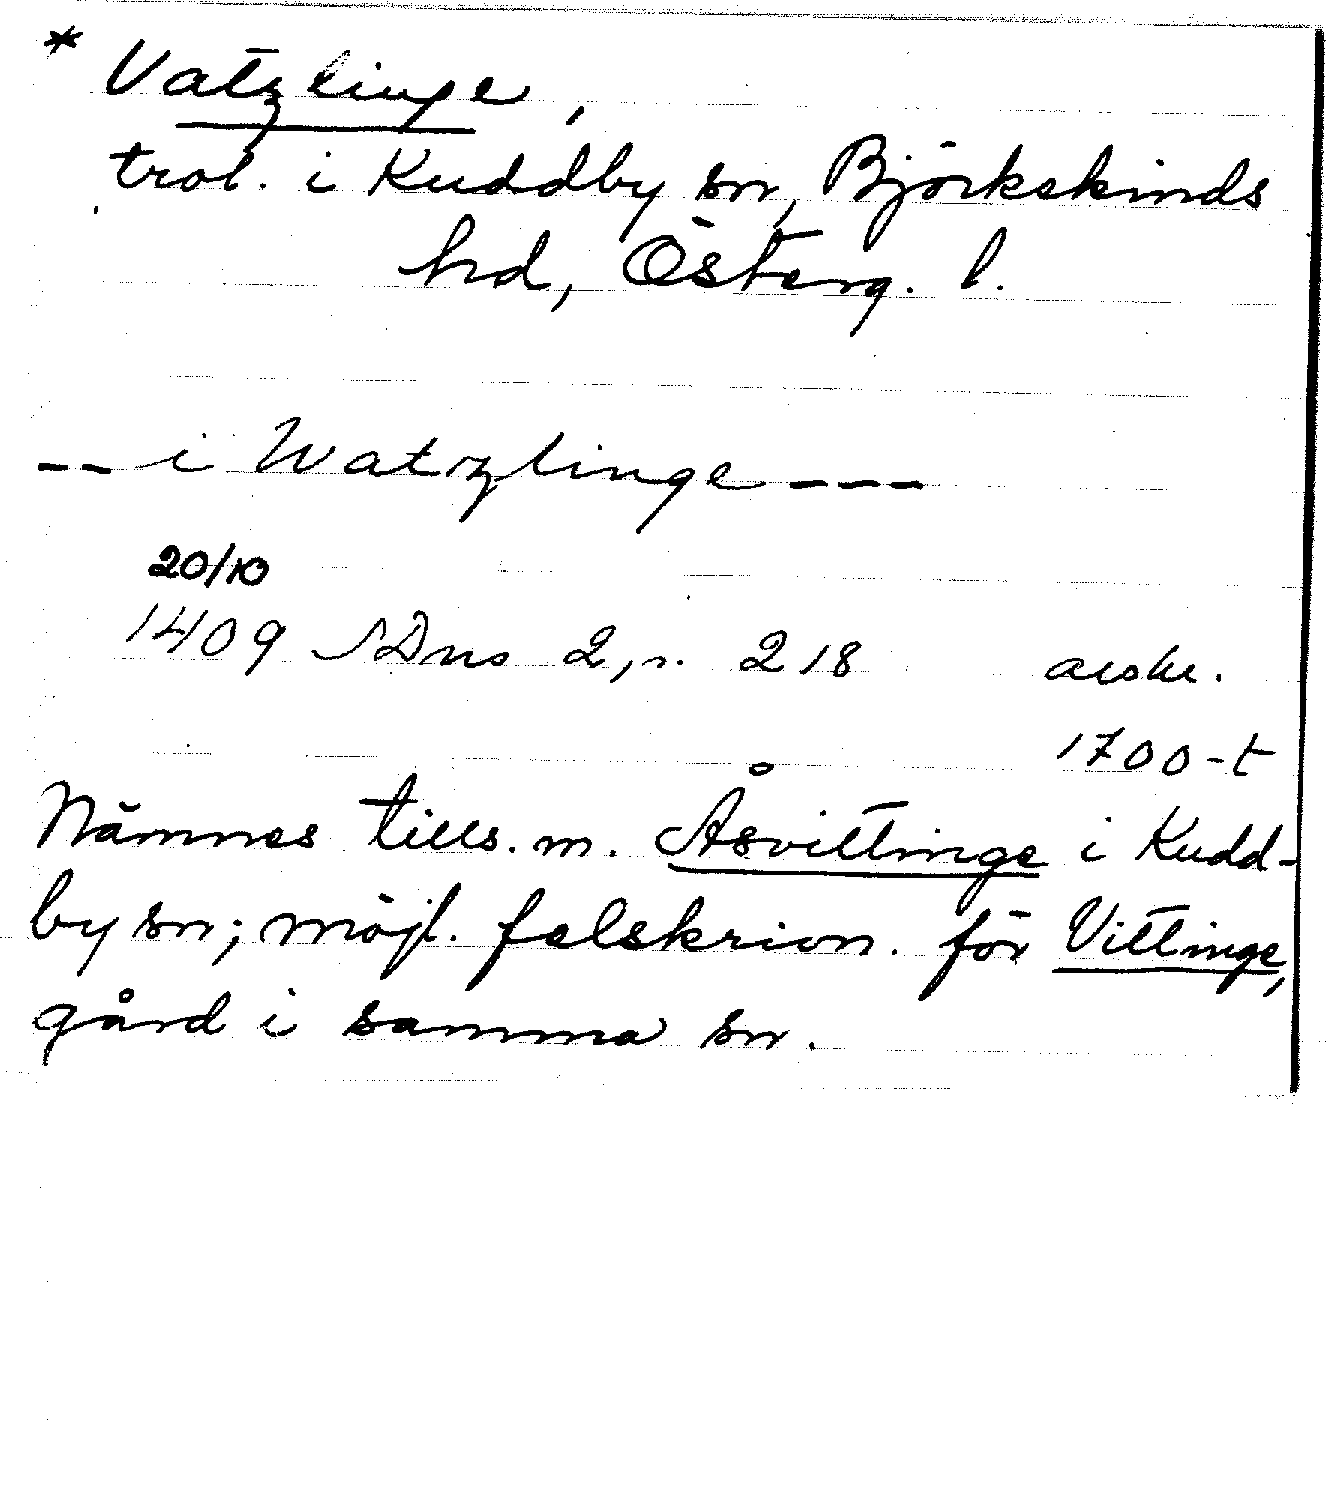 * Vatzlinge,
trol. i Kuddby sn, Björkekinds
hd, Österg. l.
-- i Watzlinge ---
20/10
1409 SDns 2, s. 218 avskr.
1700-t
Nämnes tills. m. Åsvittinge i Kudd-
by sn; möjl. felskrivn. för Vittinge,
gård i samma sn.